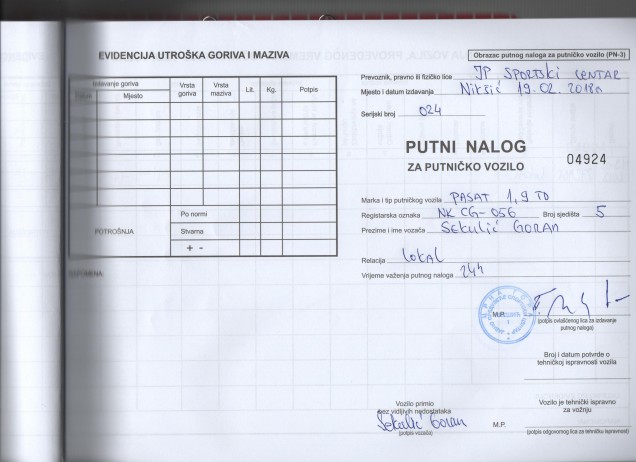 EVIDENCIJA UTROŠKA GORIVA I MAZIVA
Izdavanje goriva
Mjesto
Vrsta goriva
Vrsta maziva
Lit.
Kg.
Potpis
POTROŠNJA
Po normi
Stvarna
+ -
Obrazac putnog naloga za putničko vozilo (PN-3)
Prevoznik, pravno ili fizičko lice JP SPORTSKI CENTAR
Mjesto i datum izdavanja Nikšić 19.02.2018n
Serijski broj 024
PUTNI NALOG
ZA PUTNIČKO VOZILO
04924
Marka i tip putničkog vozila PASAT 1,9 TD
Registarska oznaka NK CG-056 Broj sjedišta 5
Prezime i ime vozača SEKULIĆ GORAN
Relacija lokal
Vrijeme važenja putnog naloga 24h
M.P.
(potpis ovlašćenog lica za izdavanje
putnog naloga)
Broj i datum potvrde o
tehničkoj ispravnosti vozila
Vozilo primio
bez vidljivih nedostataka
Sekulić Goran
(potpis vozača)
M.P.
Vozilo je tehnički ispravno
za vožnju
(potpis odgovornog lica za tehničku ispravnost)